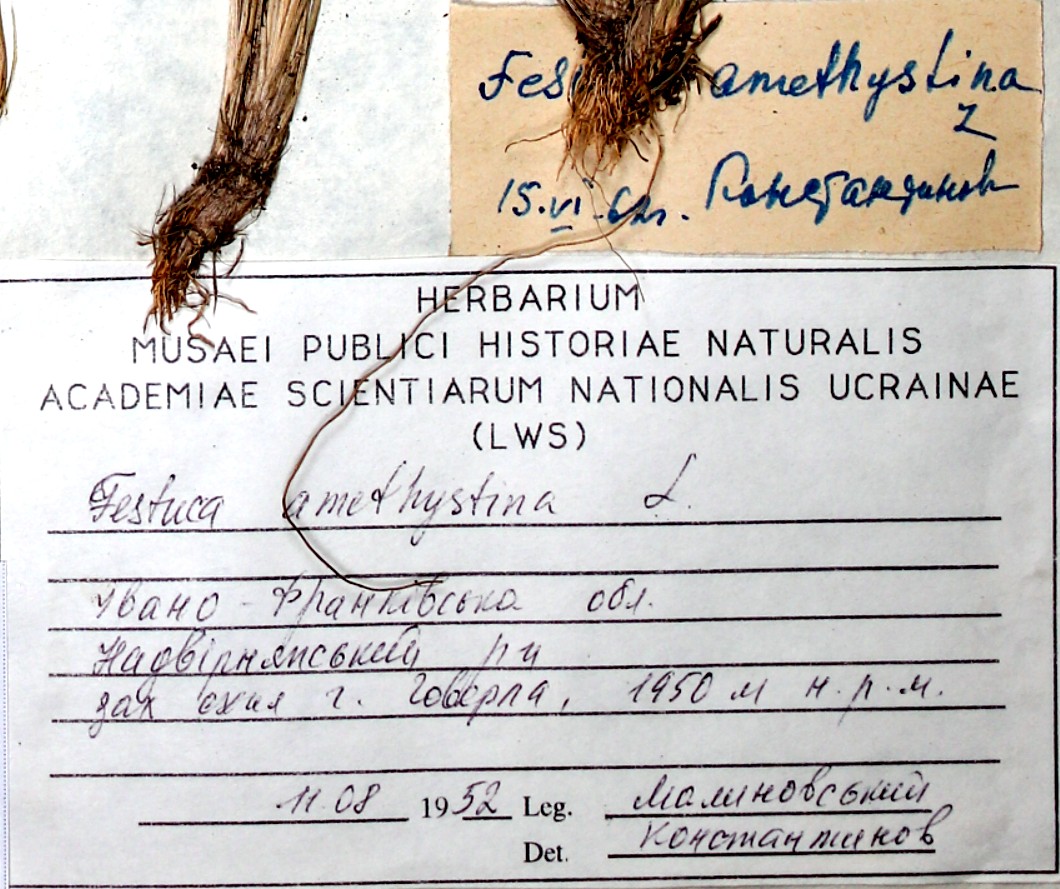 Fes amethystina
15.VI. Константинов
HERBARIUM
MUSAEI PUBLICI HISTORIAE NATURALIS
ACADEMIAE SCIENTIARUM NATIONALIS UCRAINAE
(LWS)
Festuca amethystina L.
Івано-Франківська обл.
Надвірнянський рн
зах схил г. Говерла, 1950 м н.р.м.
11.08 1952 Leg. Малиновський
Det. Константинов